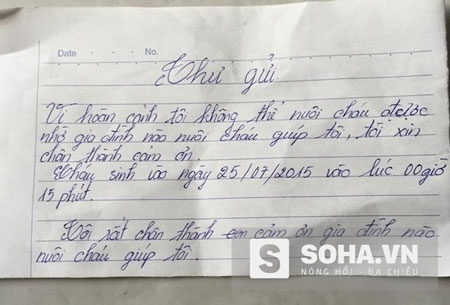 Date . . . No.
Thư gửi
Vì hoàn cảnh tôi không thể nuôi cháu được
nhờ gia đình nào nuôi cháu giúp tôi, tôi xin
chân thành cảm ơn.
Cháu sinh vào ngày 25/07/2015 vào lúc 00 giờ
15 phút.
Tôi rất chân thành cảm ơn gia đình nào
nuôi cháu giúp tôi.
S SOHA.VN
NÓNG HỔI - ĐA CHIỀU